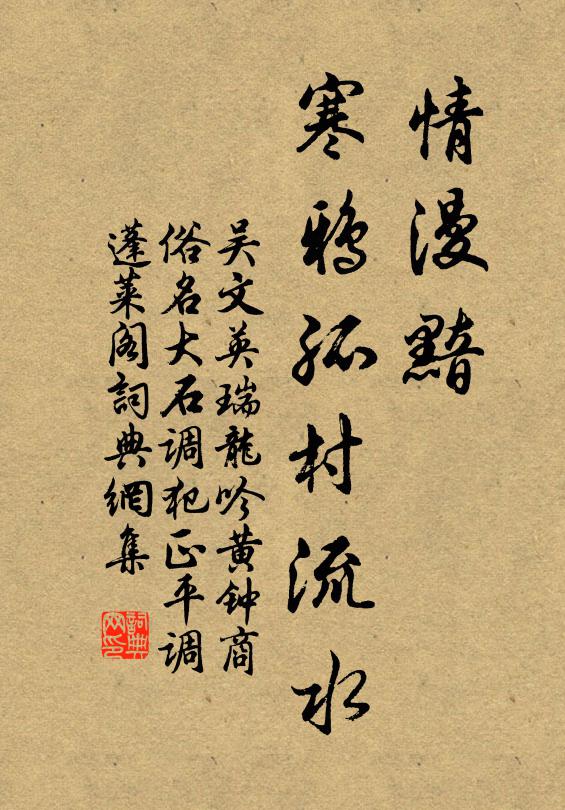 情漫黯
寒鸦孤村流水
吴文英瑞龍吟黄钟商
俗名大石调犯正平调
蓬莱阁詞典網集
詞典
网印